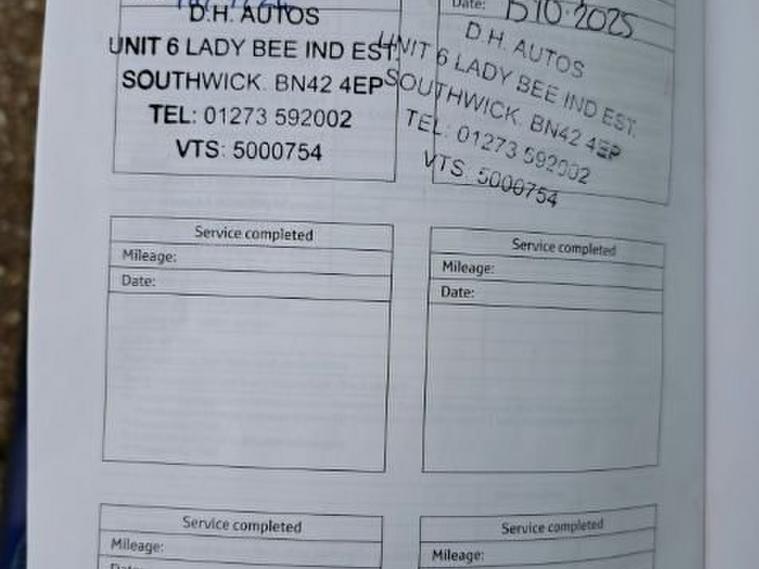 D.H. AUTOS
UNIT 6 LADY BEE IND EST.
SOUTHWICK. BN42 4EP
TEL: 01273 592002
VTS: 5000754
Date: 10.2025
D.H. AUTOS
UNIT 6 LADY BEE IND EST.
SOUTHWICK. BN42 4EP
TEL: 01273 592002
VTS: 5000754
Service completed
Mileage:
Date:
Service completed
Mileage:
Date:
Service completed
Mileage:
Date:
Service completed
Mileage: